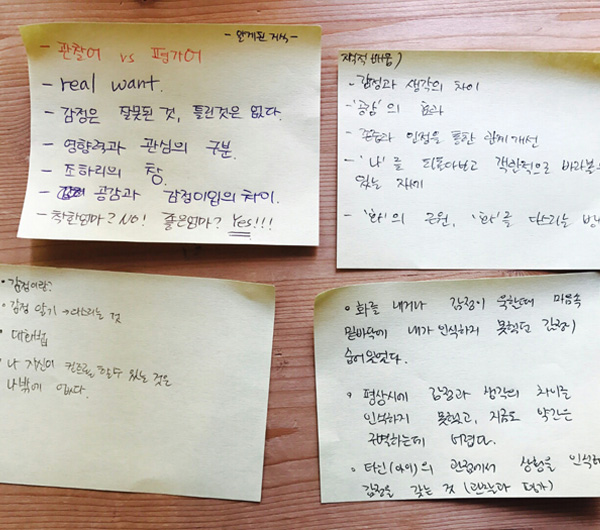 - 알게된 지식 -
- 관찰어 vs 평가어
- real want.
- 감정은 잘못된 것, 틀린것은 없다.
- 영향력과 관심의 구분.
- 조하리의 창.
- 공감과 감정이입의 차이.
- 착한엄마? No! 좋은엄마? Yes!!!
지적 배움)
- 감정과 생각의 차이
- '공감'의 효과
- 존중과 인정을 통한 관계개선
- '나'를 되돌아보고 객관적으로 바라볼 수
있는 자세
- '화'의 근원, '화'를 다스리는 방
• 감정이란?
• 감정 알기 → 다스리는 것
• 대화법
• 나 자신이 컨트롤 할 수 있는 것은
나밖에 없다.
• 화를 내거나 감정이 욱한데 마음속
밑바닥에 내가 인식하지 못했던 감정이
숨어있었다.
• 평상시에 감정과 생각의 차이를
인식하지 못했고, 지금도 약간은
구별하는데 어렵다.
• 타인(아이)의 관점에서 상황을 인식하
감정을 갖는 것 (관찰과 평가)